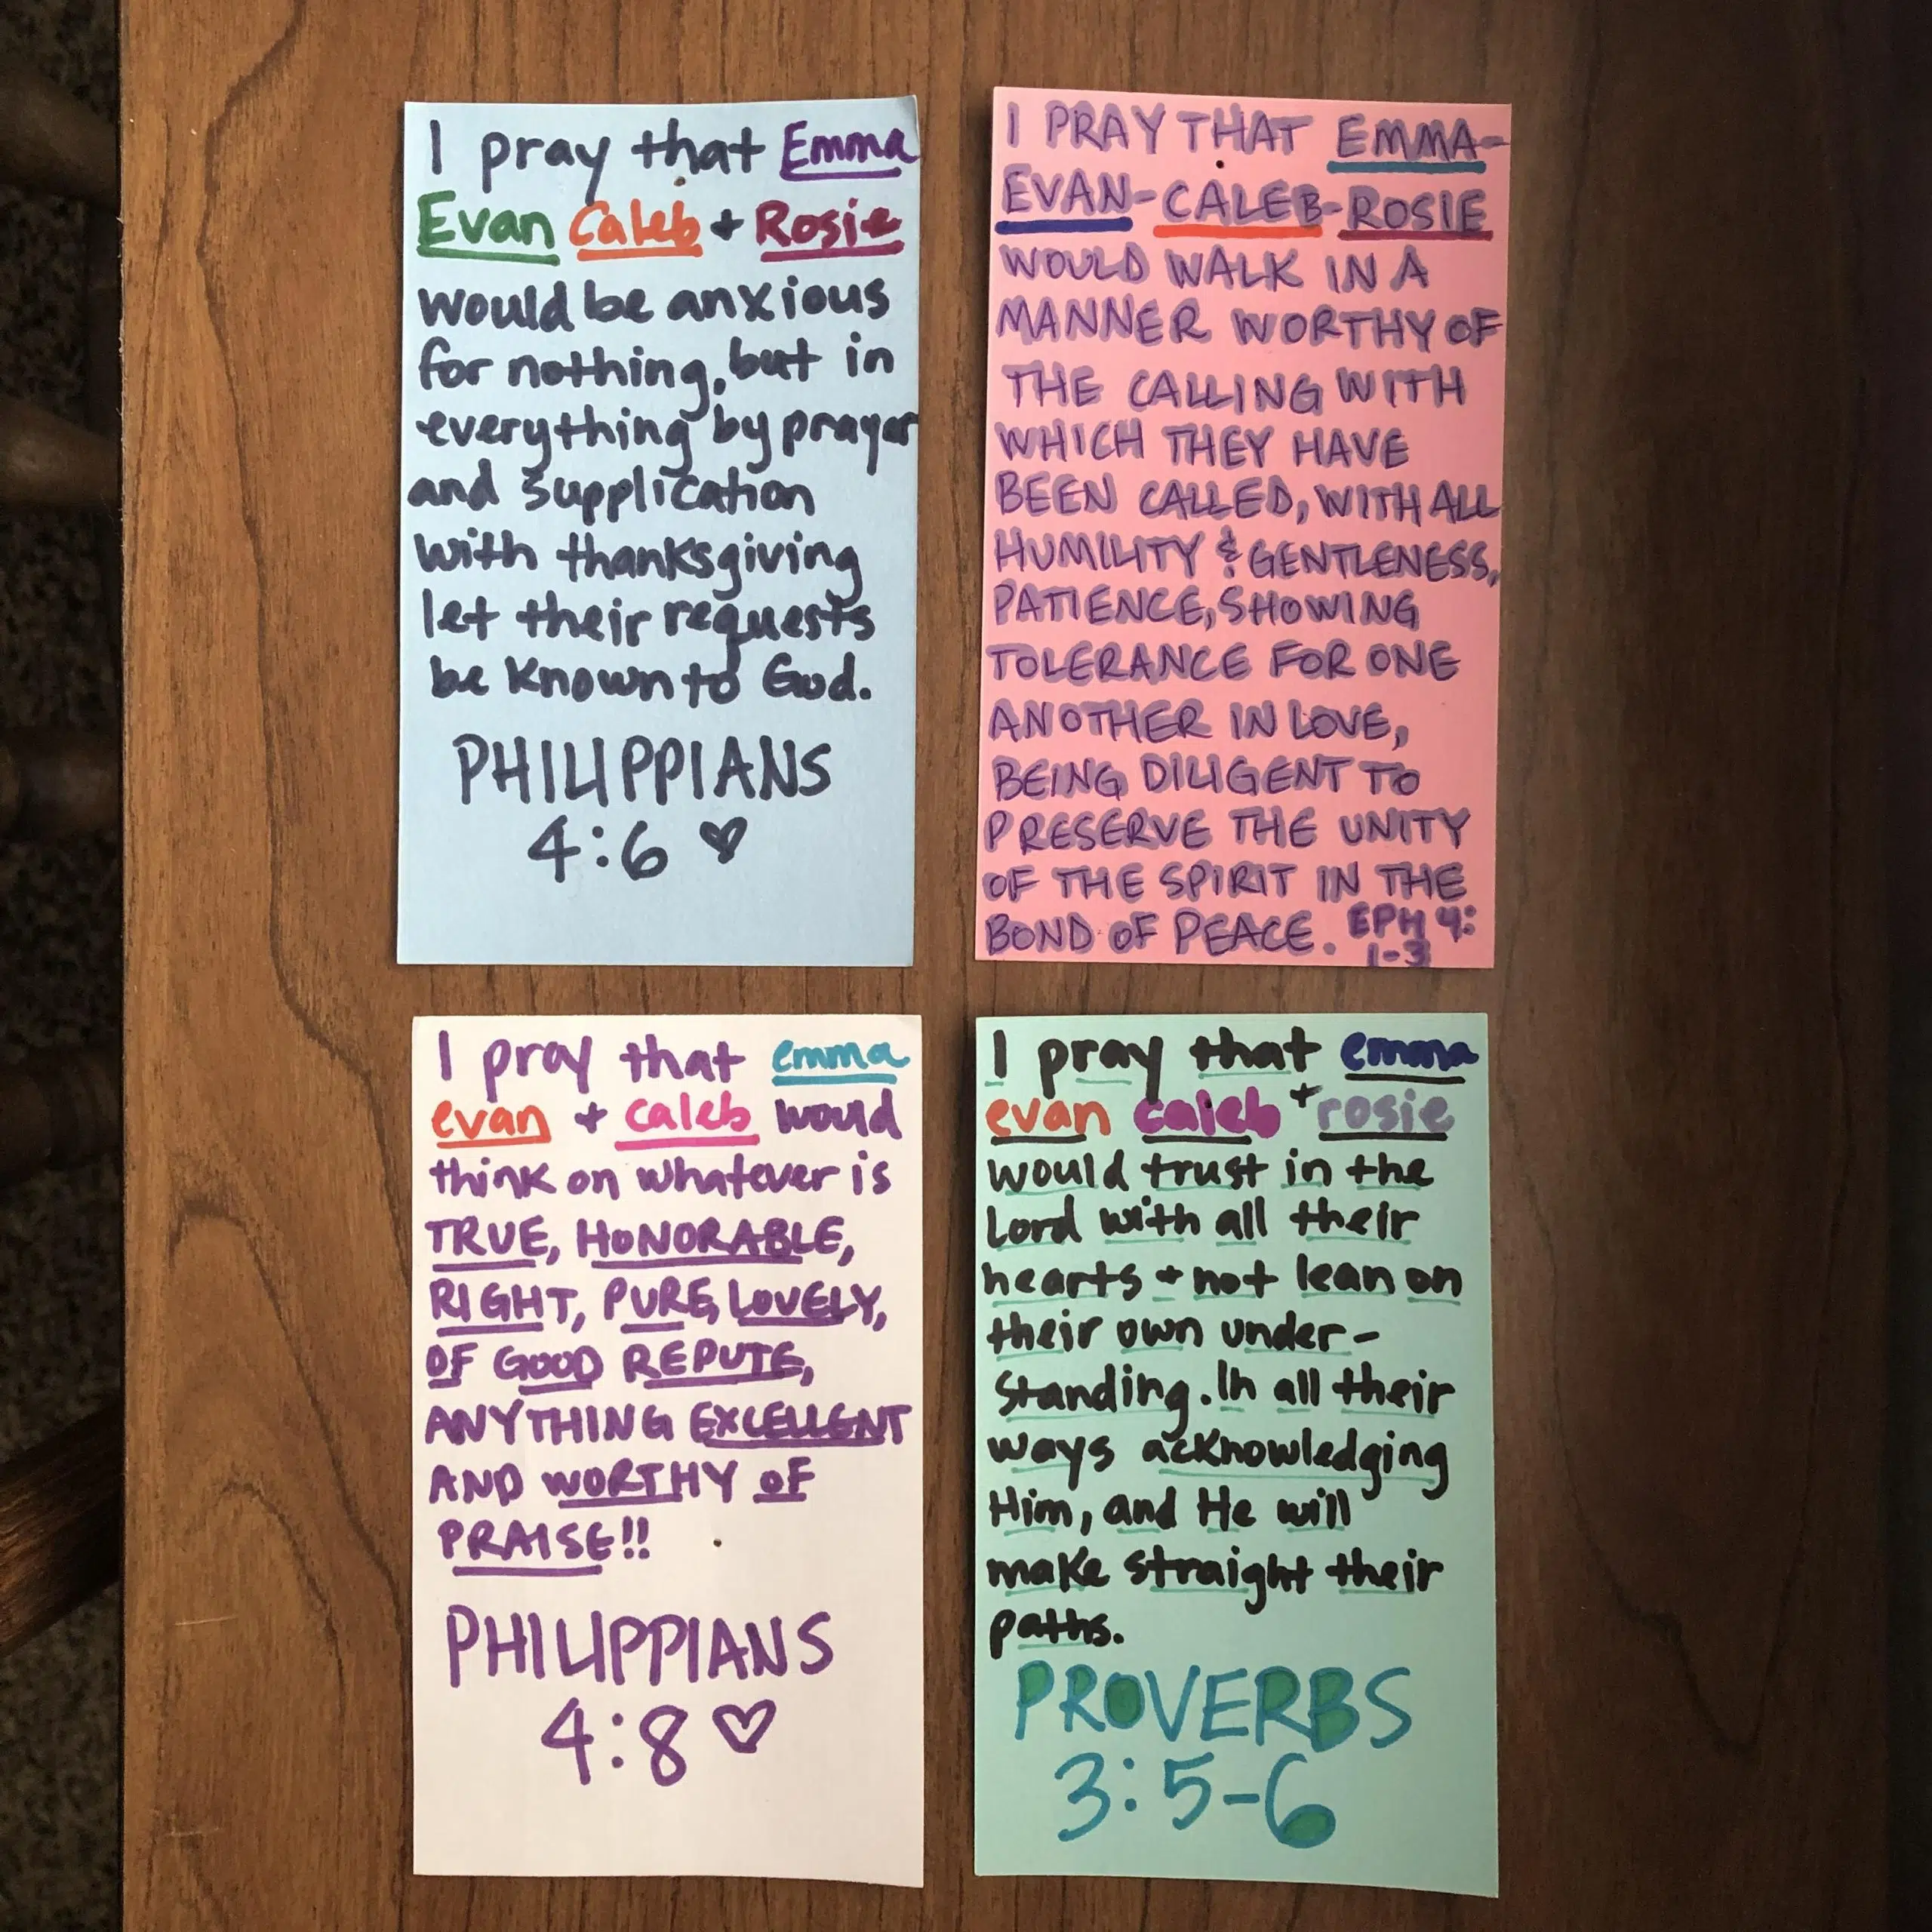 I pray that Emma
Evan Caleb + Rosie
would be anxious
for nothing, but in
everything by prayer
and supplication
with thanksgiving
let their requests
be known to God.
PHILIPPIANS
4:6 ♡
I PRAY THAT EMMA-
EVAN-CALEB-ROSIE
WOULD WALK IN A
MANNER WORTHY OF
THE CALLING WITH
WHICH THEY HAVE
BEEN CALLED, WITH ALL
HUMILITY & GENTLENESS,
PATIENCE, SHOWING
TOLERANCE FOR ONE
ANOTHER IN LOVE,
BEING DILIGENT TO
PRESERVE THE UNITY
OF THE SPIRIT IN THE
BOND OF PEACE. EPH 4:
1-3
I pray that emma
evan + caleb would
think on whatever is
TRUE, HONORABLE,
RIGHT, PURE, LOVELY,
OF GOOD REPUTE,
ANYTHING EXCELLENT
AND WORTHY OF
PRAISE!!
PHILIPPIANS
4:8 ♡
I pray that emma
evan caleb + rosie
would trust in the
Lord with all their
hearts + not lean on
their own under-
standing. In all their
ways acknowledging
Him, and He will
make straight their
paths.
PROVERBS
3:5-6